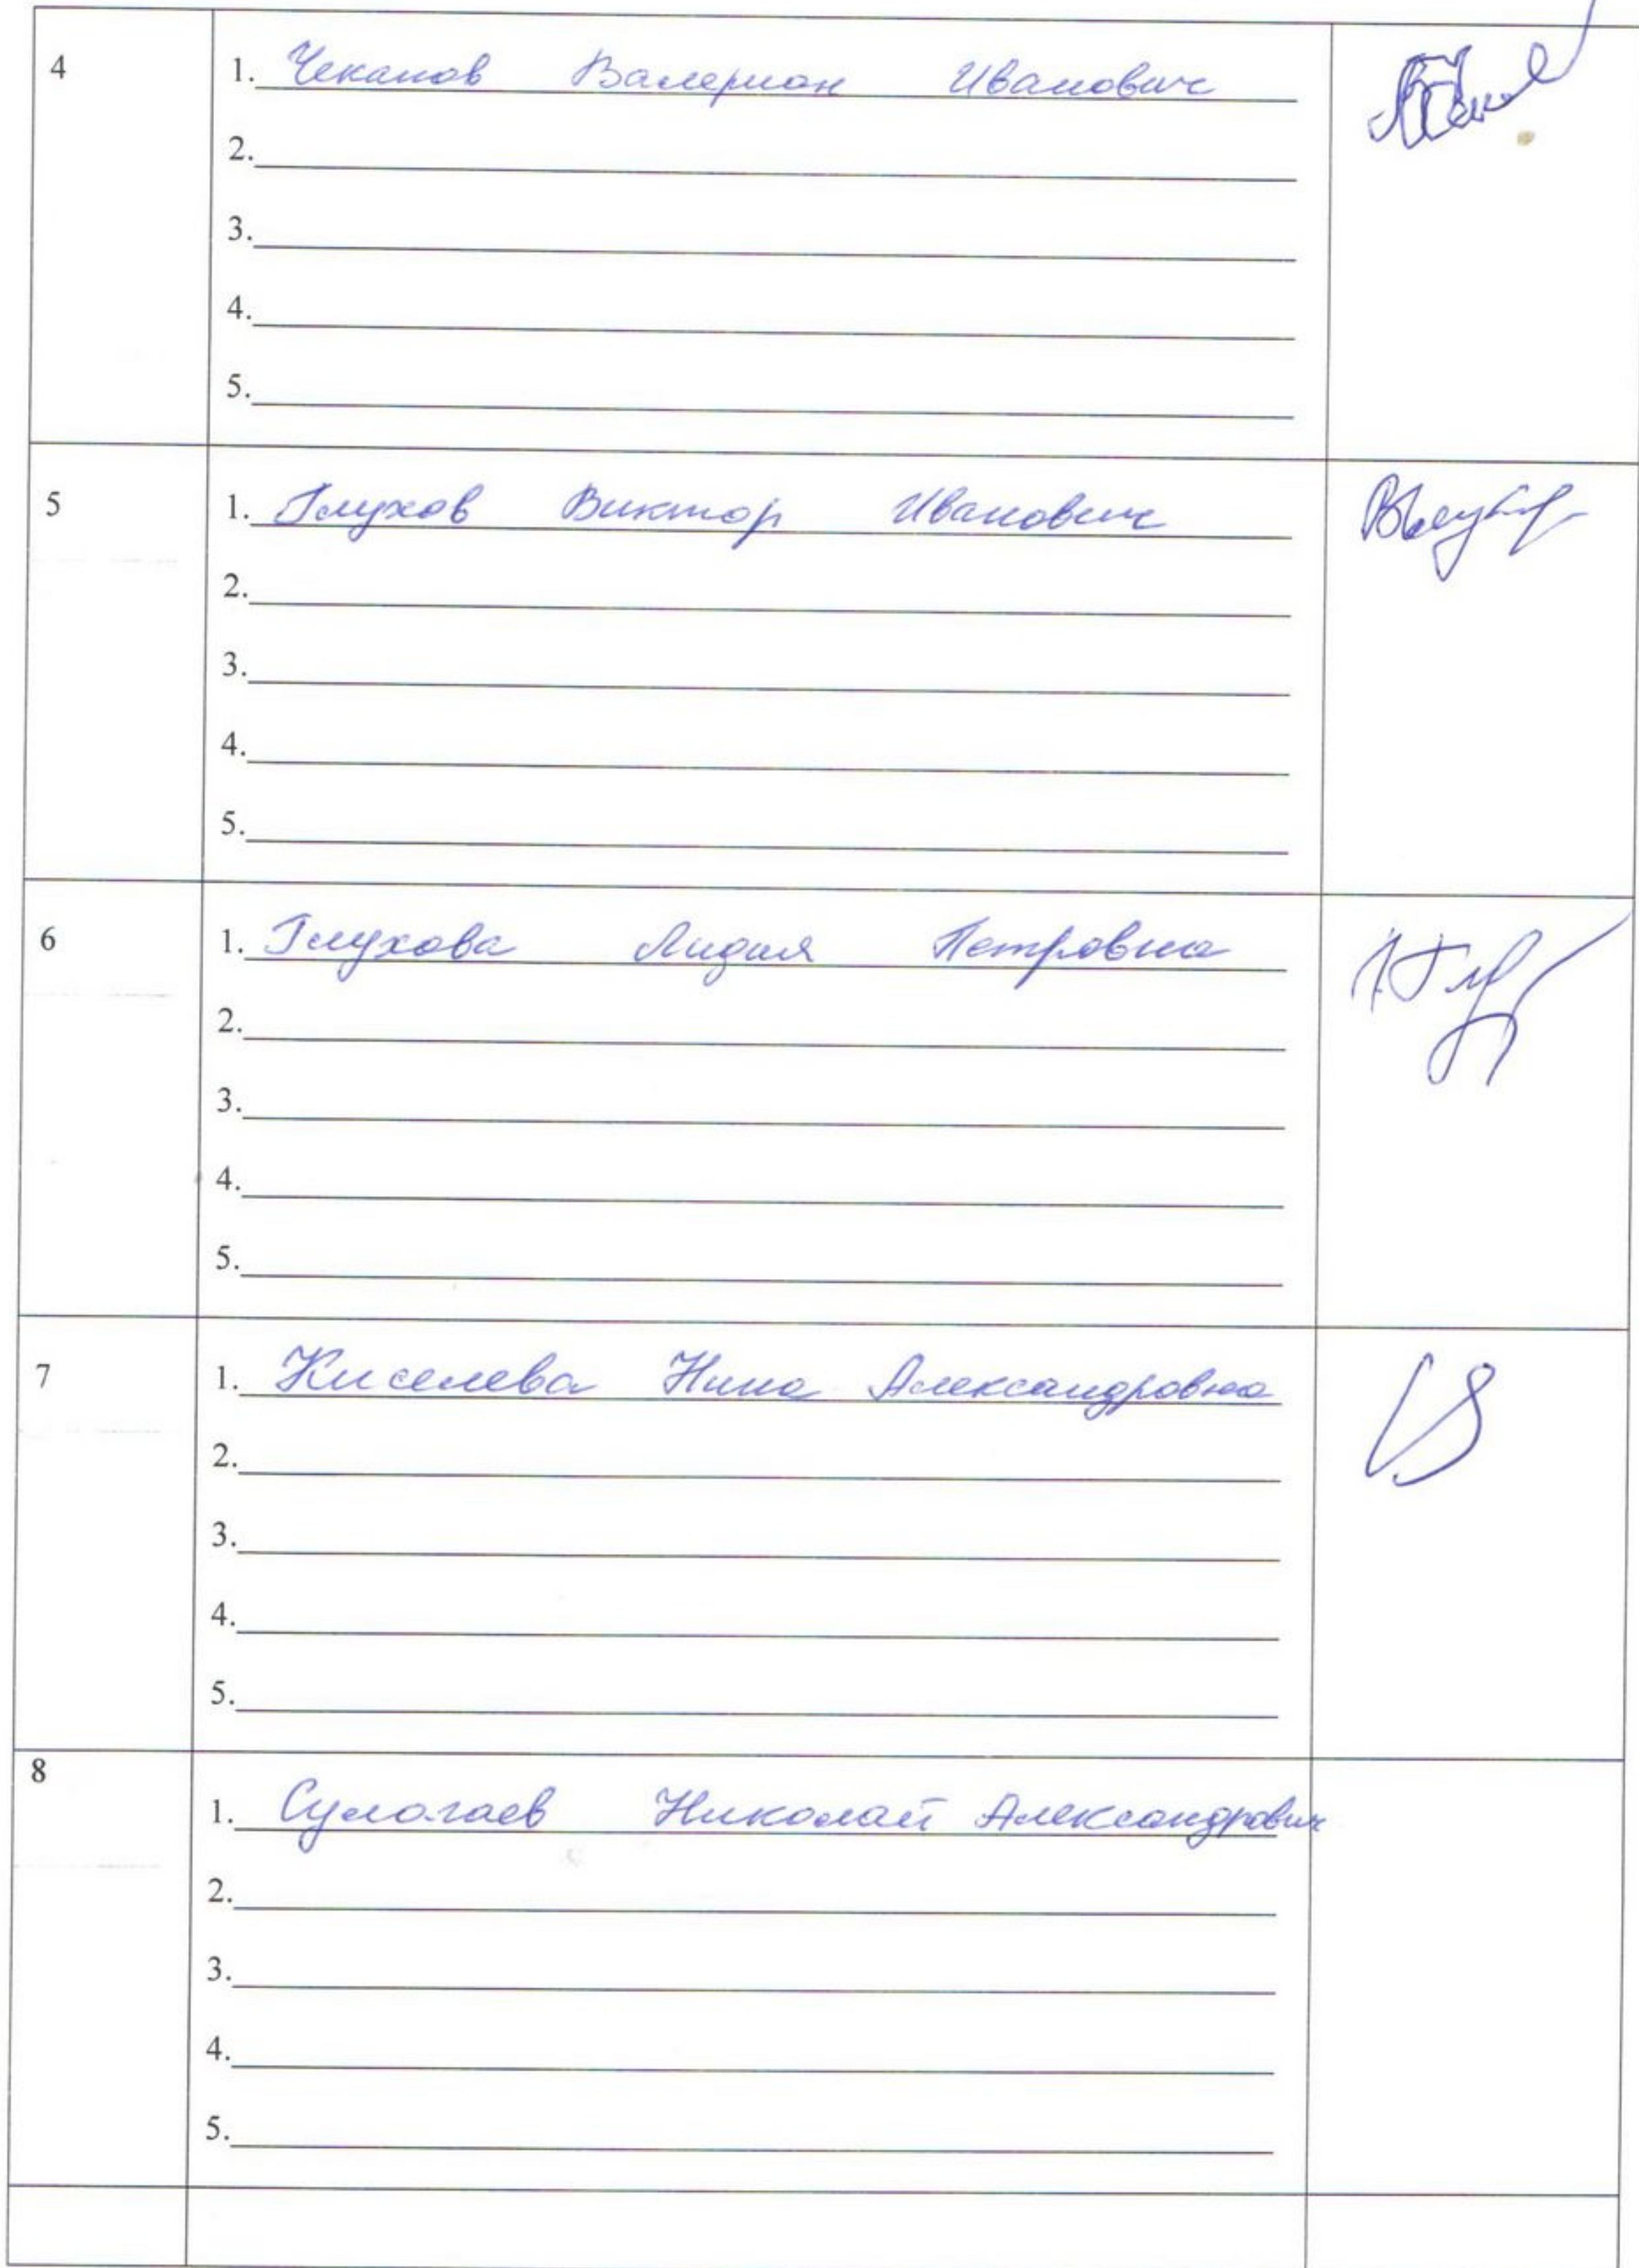 4
1. Чеканов Валериан Иванович
2.
3.
4.
5.
5
1. Глухов Виктор Иванович
2.
3.
4.
5.
6
1. Глухова Лидия Петровна
2.
3.
4.
5.
7
1. Киселева Нина Александровна
2.
3.
4.
5.
8
1. Сулогаев Николай Александрович
2.
3.
4.
5.